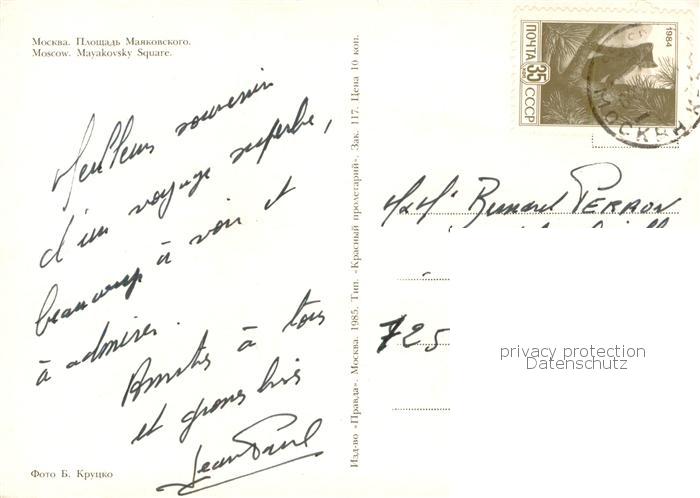 Москва. Площадь Маяковского.
Moscow. Mayakovsky Square.
Meilleurs souvenirs
d'un voyage superbe,
beaucoup à voir et
à admirer.
Amitiés à tous
et grosses bises
Jean Paul
Фото Б. Круцко
Изд-во «Правда». Москва. 1985. Тип. «Красный пролетарий». Зак. 117. Цена 10 коп.
1984
ПОЧТА
35
СССР
МОСКВА
M & Me Bernard PERRON
725
privacy protection
Datenschutz